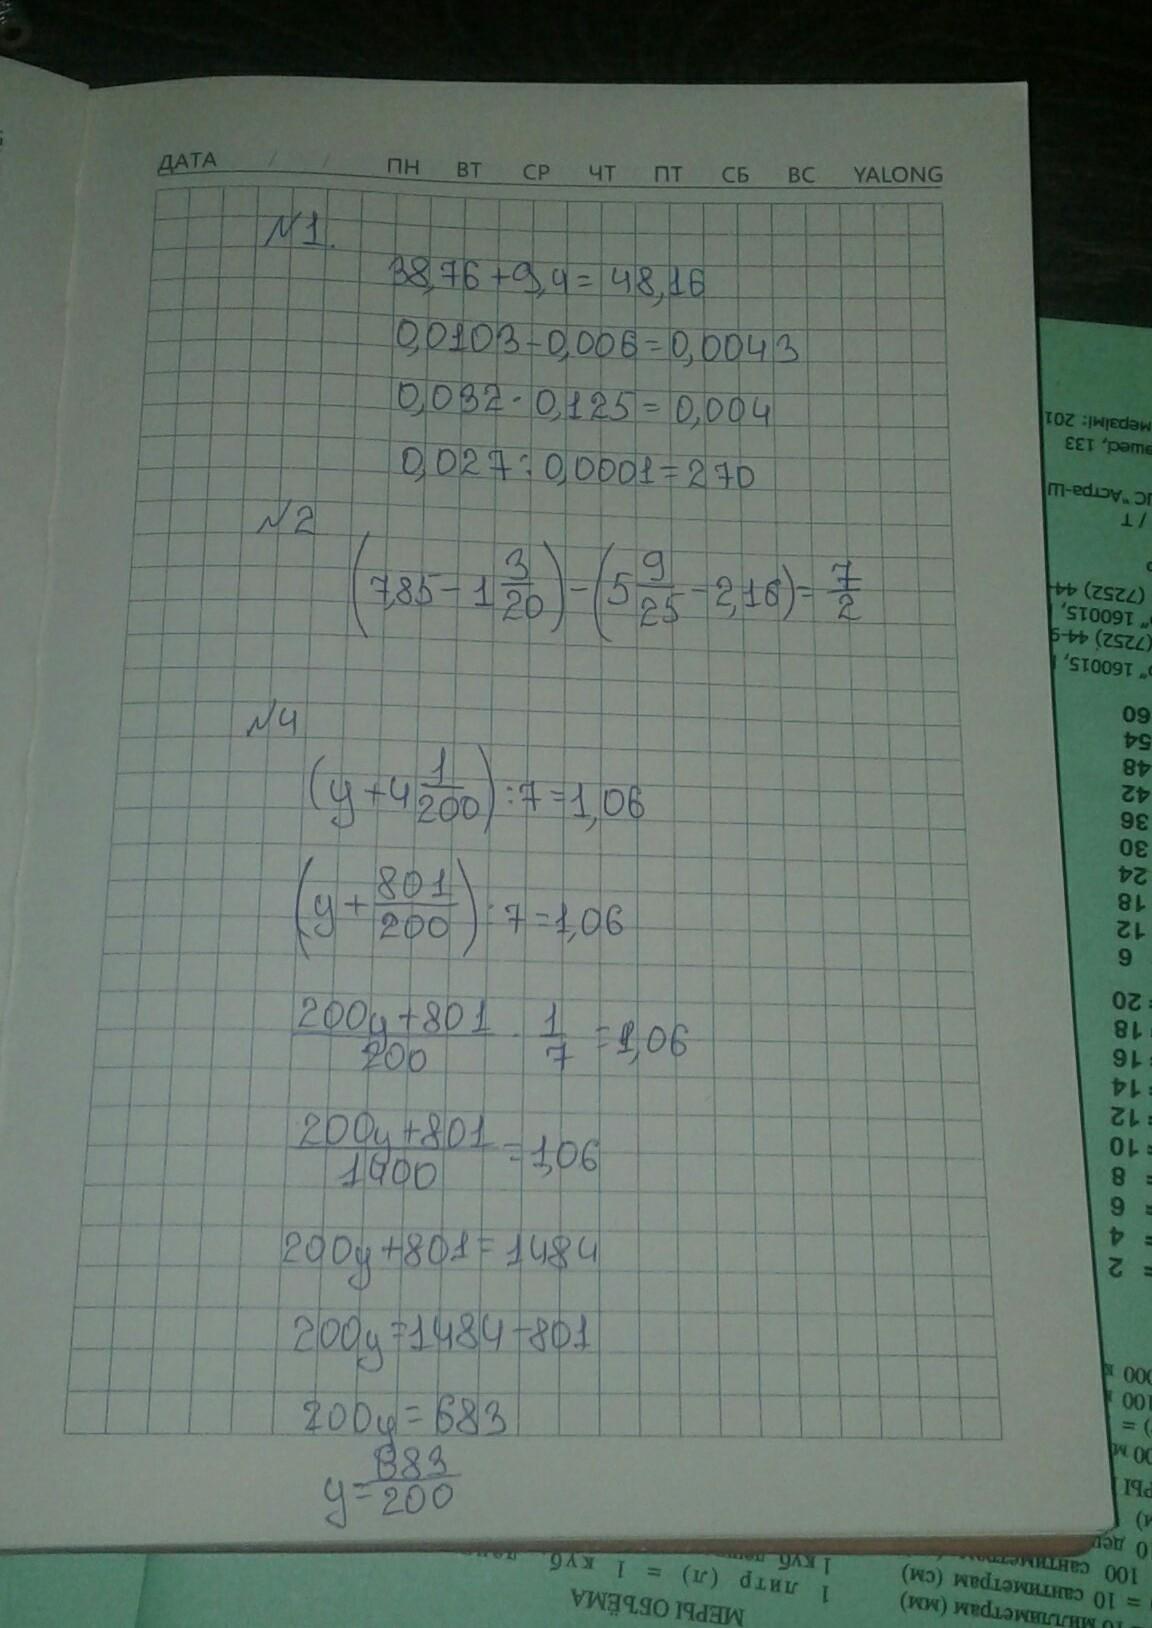 ДАТА / / ПН ВТ СР ЧТ ПТ СБ ВС YALONG
№1.
38,76+9,4=48,16
0,0103-0,006=0,0043
0,032·0,125=0,004
0,027:0,0001=270
№2
(7,85-1 3/20)-(5 9/25-2,16)=7/2
№4
(y+4 1/200):7=1,06
(y+801/200):7=1,06
200y+801/200·1/7=1,06
200y+801/1400=1,06
200y+801=1484
200y=1484-801
200y=683
y=683/200
мерзімі: 201
133
ЖС "Астра-Ш
/ Т
(7252) 44
" 160015,
(7252) 44-9
" 160015,
60
54
48
42
36
30
24
18
12
6
= 20
= 18
= 16
= 14
= 12
= 10
= 8
= 6
= 4
= 2
МЕРЫ ОБЪЁМА
1 литр (л) = 1 куб.
1 куб.
10 миллиметрам (мм)
= 10 сантиметрам (см)
100 сантиметрам